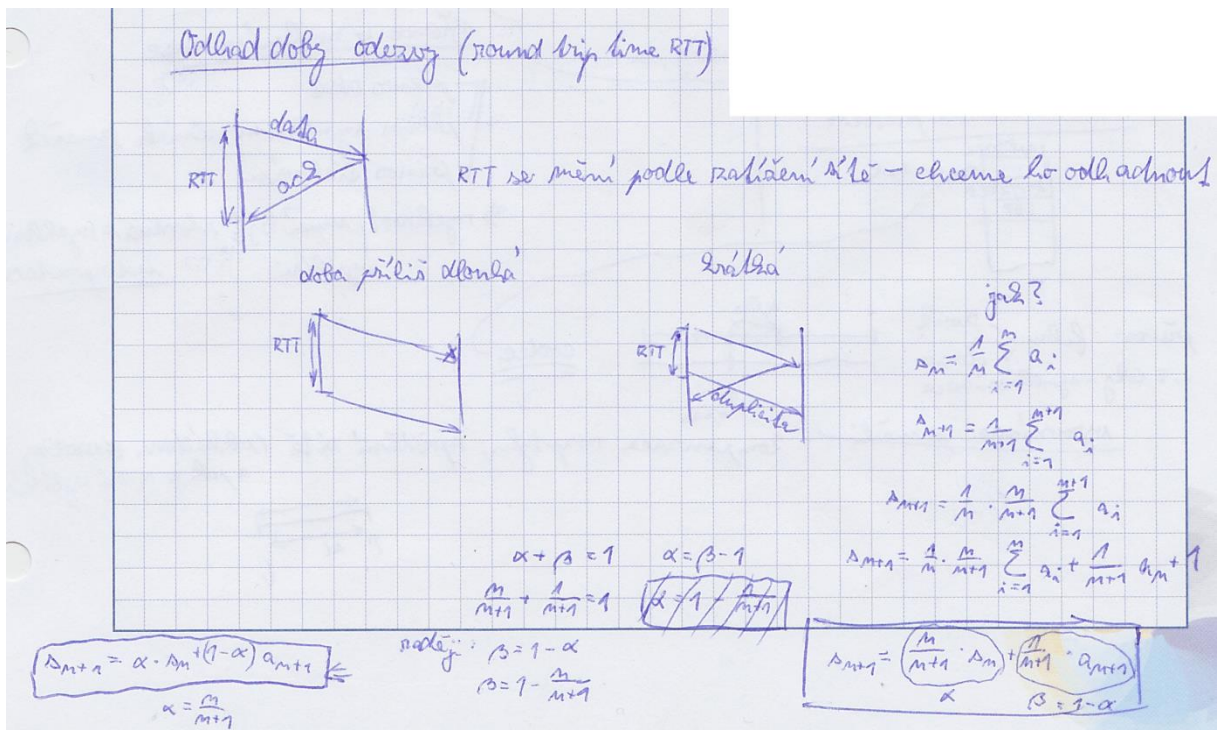 Odhad doby odezvy (round trip time RTT)
data
RTT
ack
RTT se mění podle zatížení sítě – chceme ho odhadnout
doba příliš dlouhá
krátká
jak?
RTT
RTT
duplicita
s_n = 1/n ∑_{i=1}^{n} a_i
s_{n+1} = 1/(n+1) ∑_{i=1}^{n+1} a_i
s_{n+1} = 1/n · n/(n+1) ∑_{i=1}^{n+1} a_i
α + β = 1   α = β - 1
s_{n+1} = 1/n · n/(n+1) ∑_{i=1}^{n} a_i + 1/(n+1) a_n + 1
n/(n+1) + 1/(n+1) = 1
raději: β = 1 - α
β = 1 - n/(n+1)
s_{n+1} = α · s_n + (1-α) a_{n+1}
α = n/(n+1)
s_{n+1} = n/(n+1) · s_n + 1/(n+1) · a_{n+1}
α   β = 1-α